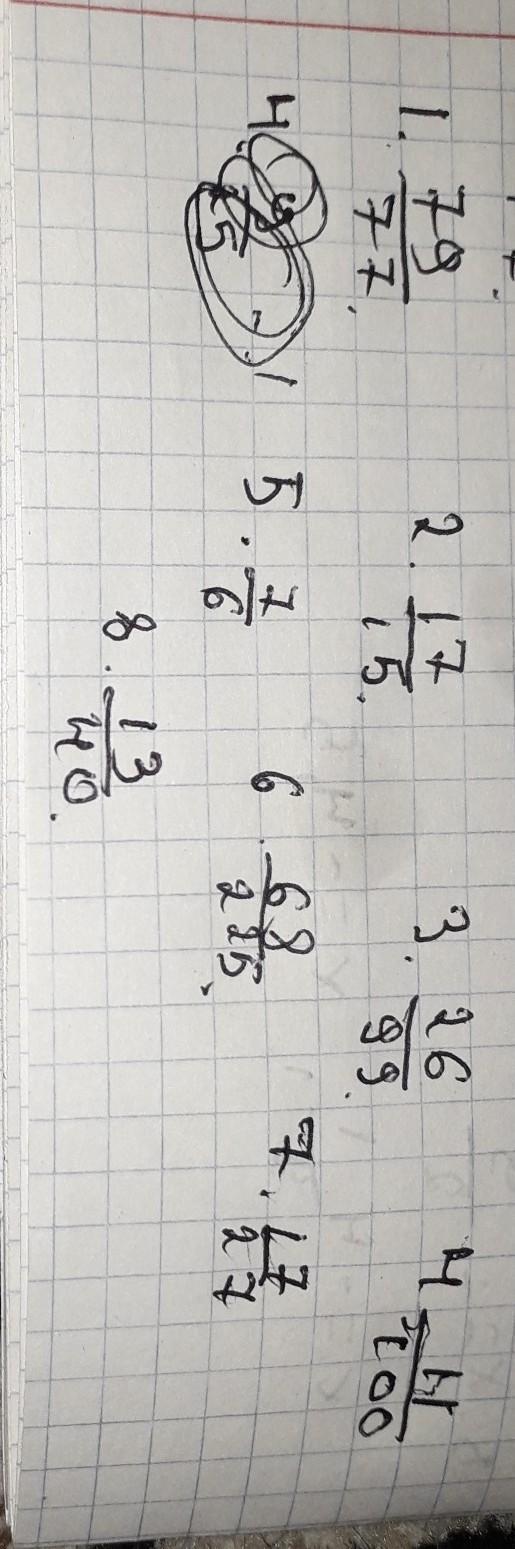 1. 79/77. 2. 17/15. 3. 26/99. 4.
5. 7/6 6. 68/225. 7. 17/27
8. 13/40.